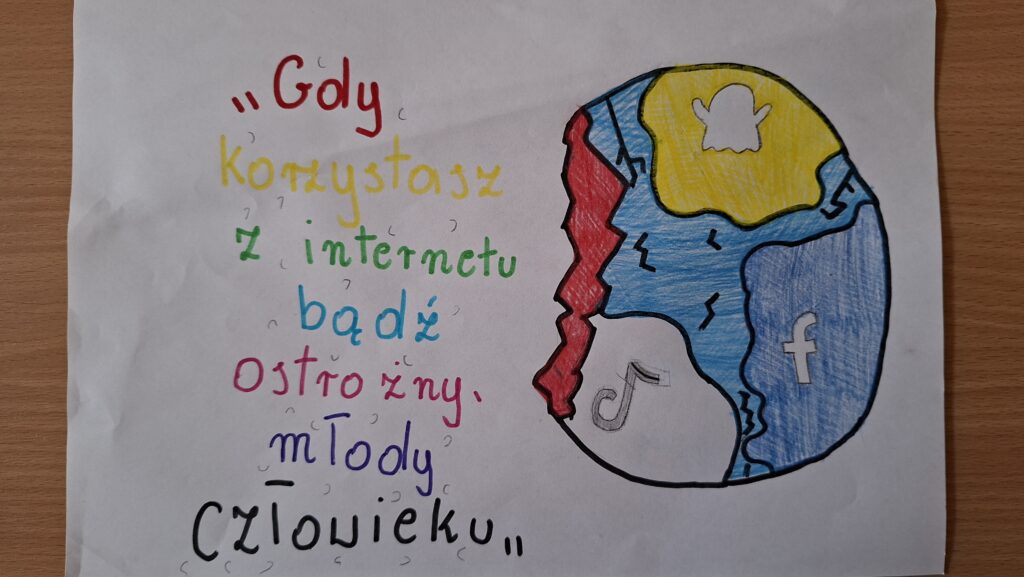 „Gdy
korzystasz
z internetu
bądź
ostrożny.
młody
człowieku„
f